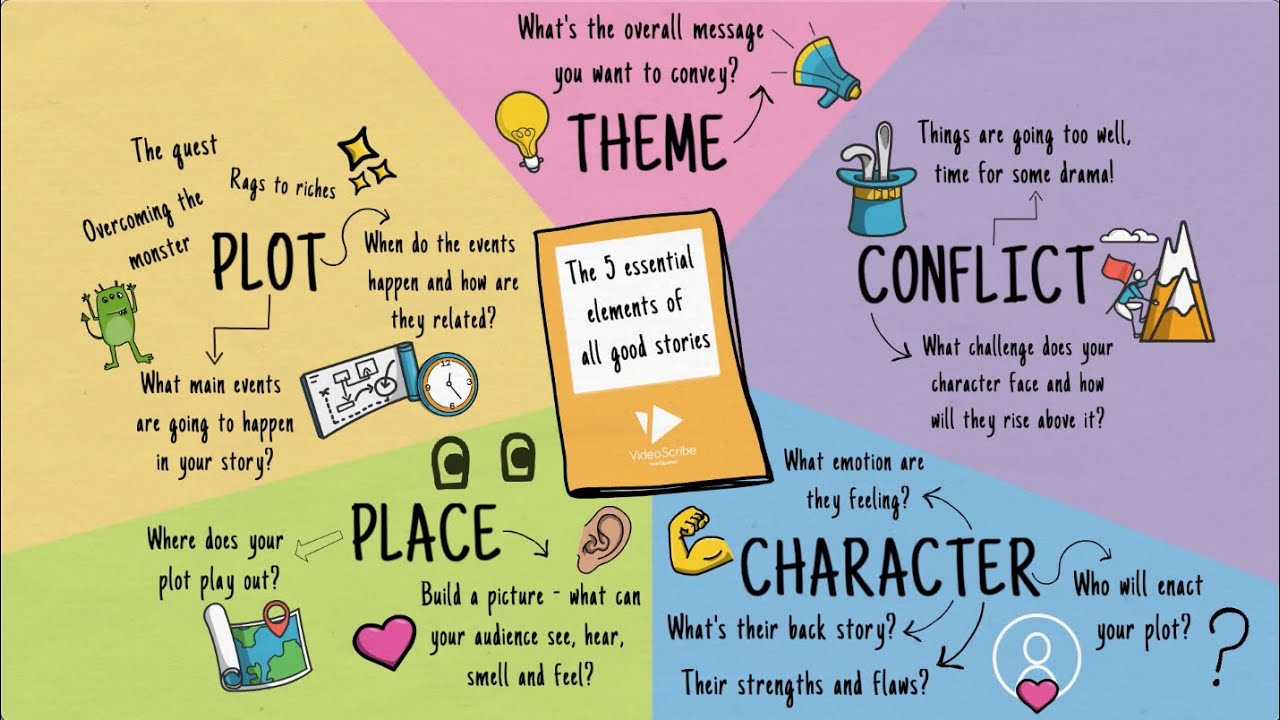 What's the overall message
you want to convey?
THEME
The quest
Rags to riches
Overcoming the
monster
PLOT
When do the events
happen and how are
they related?
What main events
are going to happen
in your story?
The 5 essential
elements of
all good stories
VideoScribe
Things are going too well,
time for some drama!
CONFLICT
What challenge does your
character face and how
will they rise above it?
PLACE
Where does your
plot play out?
Build a picture - what can
your audience see, hear,
smell and feel?
What emotion are
they feeling?
CHARACTER
Who will enact
your plot?
What's their back story?
Their strengths and flaws?
?
12
3
6
9